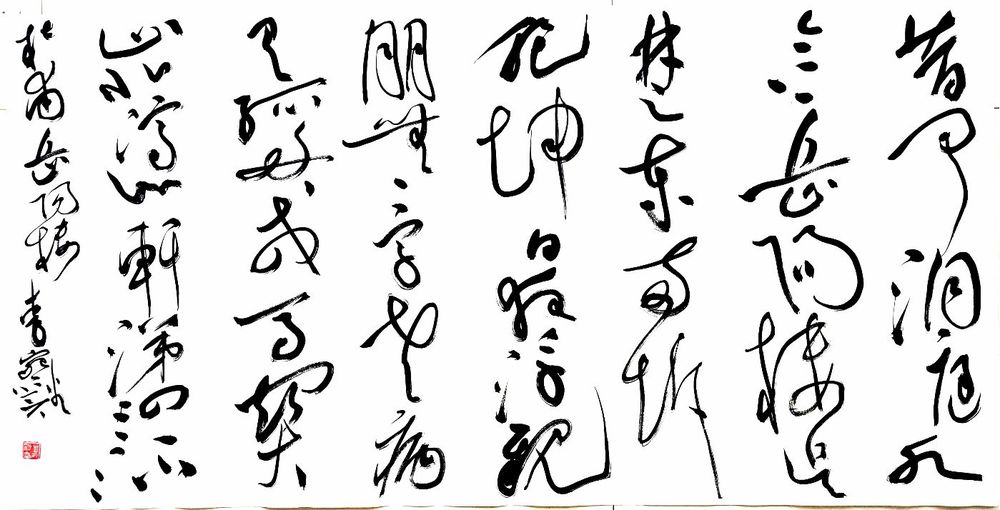 昔闻洞庭水
今上岳陽楼吴
楚东南坼
乾坤日夜浮親
朋無一字老病
有孤舟戎马關
山北凭軒涕泗流
杜甫岳陽楼